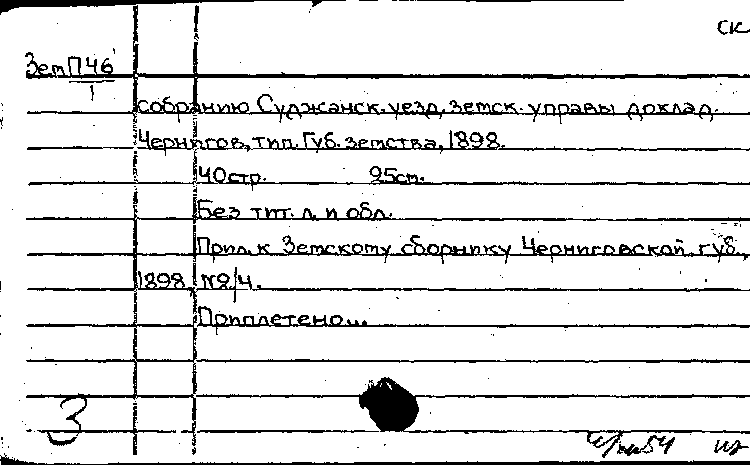 ск
ЗемП46
1
собранию Суджанск. уезд. земск. управы доклад.
Чернигов, тип. Губ. земства, 1898.
40стр. 25см.
Без тит. л. и обл.
Прил. к Земскому сборнику Черниговской губ.,
1898, №2/4.
Приплетено...
3